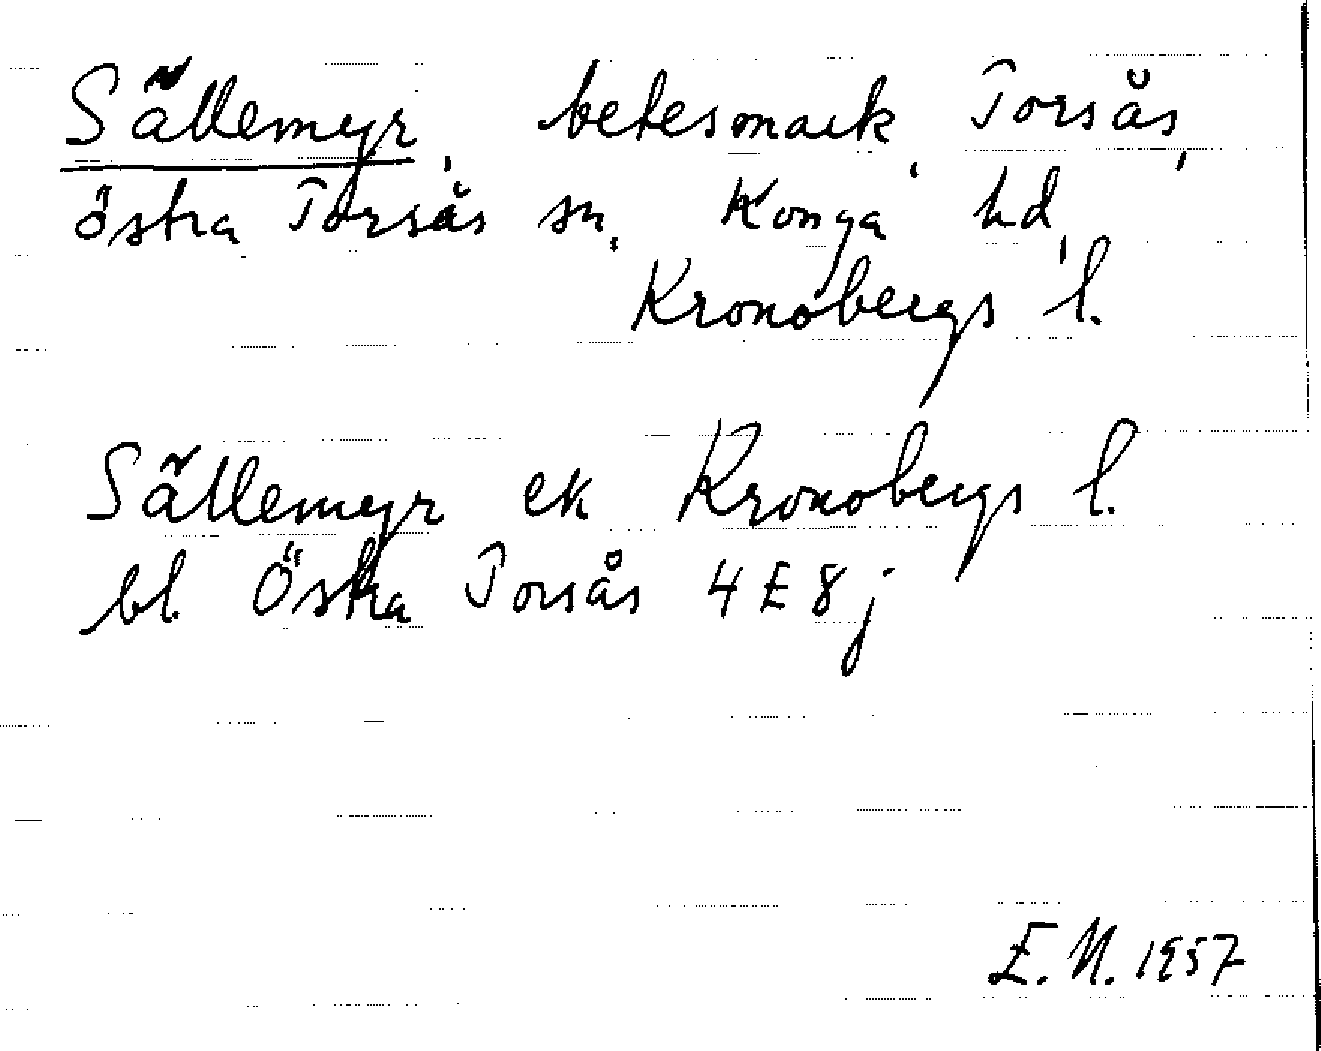 Sällemyr, betesmark, Torsås,
östra Torsås sn, Konga hd,
Kronobergs l.
Sällemyr ek Kronobergs l.
bl. Östra Torsås 4E8j
E.N. 1957